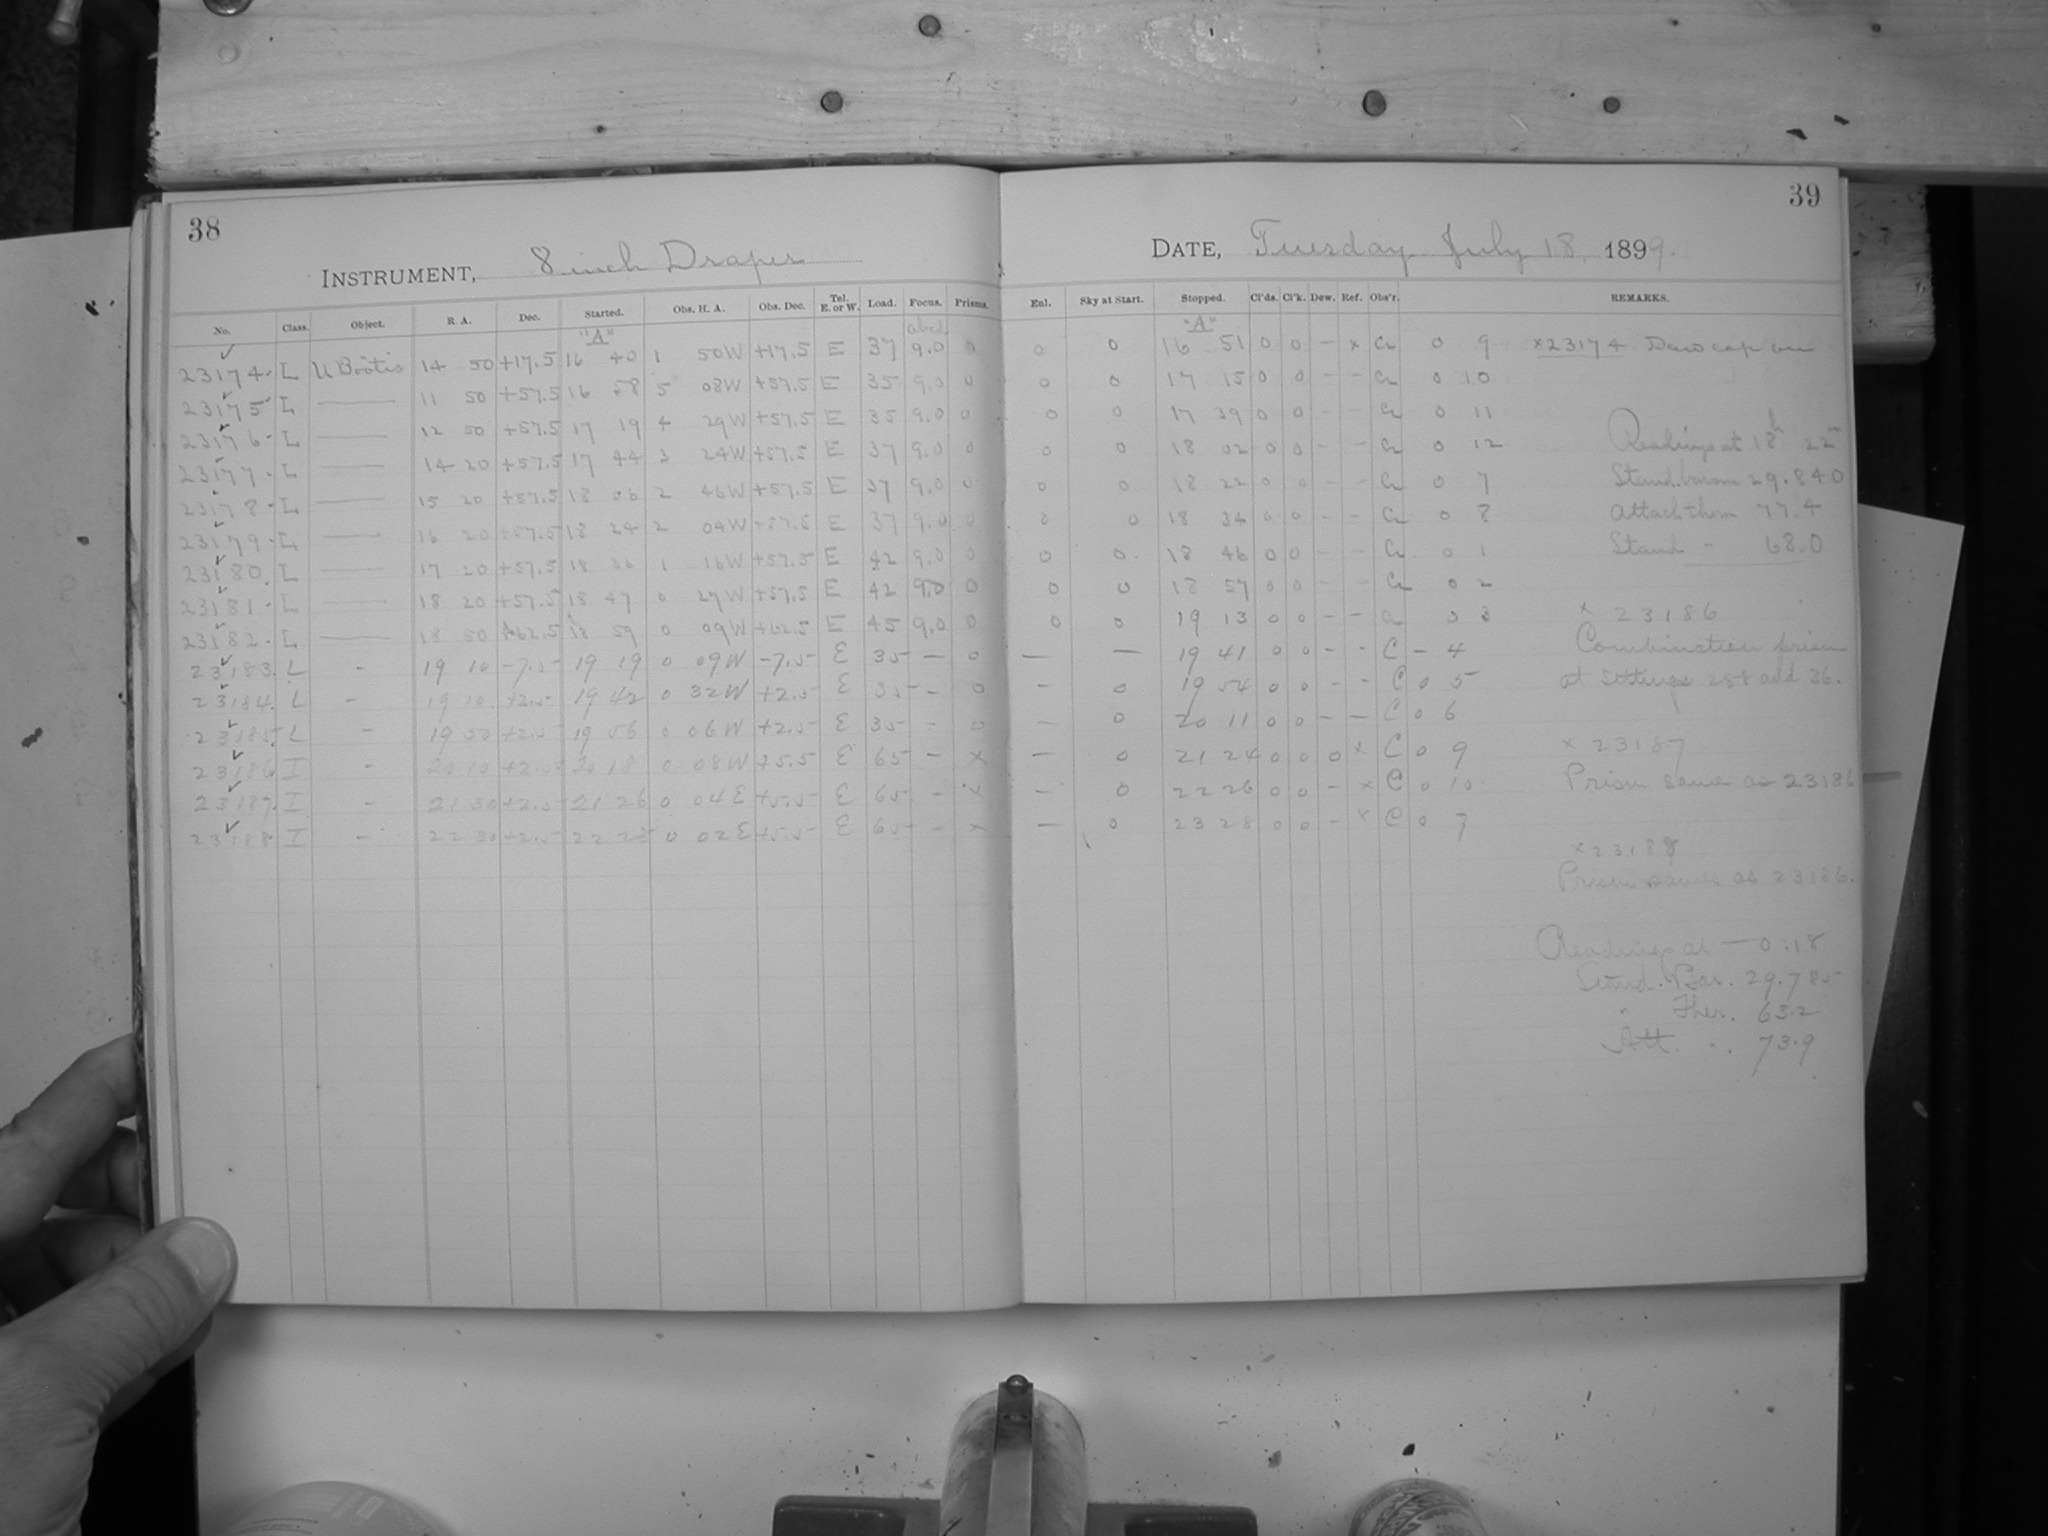 38
INSTRUMENT, 8 inch Draper
No. Class. Object. R. A. Dec. Started. Obs. H. A. Obs. Dec. Tel. E. or W. Load. Focus. Prisms.
"A" abcd
23174 L U Boötis 14 50 +17.5 16 40 1 50W +17.5 E 37 9.0 0
23175 L — 11 50 +57.5 16 58 5 08W +57.5 E 35 9.0 0
23176 L — 12 50 +57.5 17 19 4 29W +57.5 E 35 9.0 0
23177 L — 14 20 +57.5 17 44 3 24W +57.5 E 37 9.0 0
23178 L — 15 20 +57.5 18 06 2 46W +57.5 E 37 9.0 0
23179 L — 16 20 +57.5 18 24 2 04W +57.5 E 37 9.0 0
23180 L — 17 20 +57.5 18 36 1 16W +57.5 E 42 9.0 0
23181 L — 18 20 +57.5 18 47 0 27W +57.5 E 42 9.0 0
23182 L — 18 50 +62.5 18 59 0 09W +62.5 E 45 9.0 0
23183 L - 19 10 -7.5 19 19 0 09W -7.5 E 35 — 0
23184 L - 19 10 +2.5 19 42 0 32W +2.5 E 35 - 0
23185 L - 19 50 +2.5 19 56 0 06W +2.5 E 35 - 0
23186 I - 20 10 +2.5 20 18 0 08W +5.5 E 65 - x
23187 I - 21 30 +2.5 21 26 0 04E +5.5 E 65 - x
23188 I - 22 30 +2.5 22 28 0 02E +5.5 E 65 - x
39
DATE, Tuesday July 18, 1899.
Enl. Sky at Start. Stopped. Cl'ds. Cl'k. Dew. Ref. Obs'r. REMARKS.
"A"
0 0 16 51 0 0 - x Cr 0 9 x23174 Dew cap on
0 0 17 15 0 0 - - Cr 0 10
0 0 17 39 0 0 - - Cr 0 11
0 0 18 02 0 0 - - Cr 0 12 Readings at 18h 22m
0 0 18 22 0 0 - - Cr 0 7 Stand. barom 29.840
0 0 18 34 0 0 - - Cr 0 8 Attach therm 77.4
0 0 18 46 0 0 - - Cr 0 1 Stand - 68.0
0 0 18 57 0 0 - - Cr 0 2
0 0 19 13 0 0 - - Cr 0 3 x 23186
— — 19 41 0 0 - - C - 4 Combination prism
- 0 19 54 0 0 - - C 0 5 at settings 288 add 36.
- 0 20 11 0 0 - - C 0 6
- 0 21 24 0 0 0 x C 0 9 x 23187
- 0 22 26 0 0 - x C 0 10 Prism same as 23186
- 0 23 28 0 0 - x C 0 7
x 23188
Prism same as 23186.
Readings at — 0:18
Stand. Bar. 29.785
" Ther. 63.2
Att. " 73.9